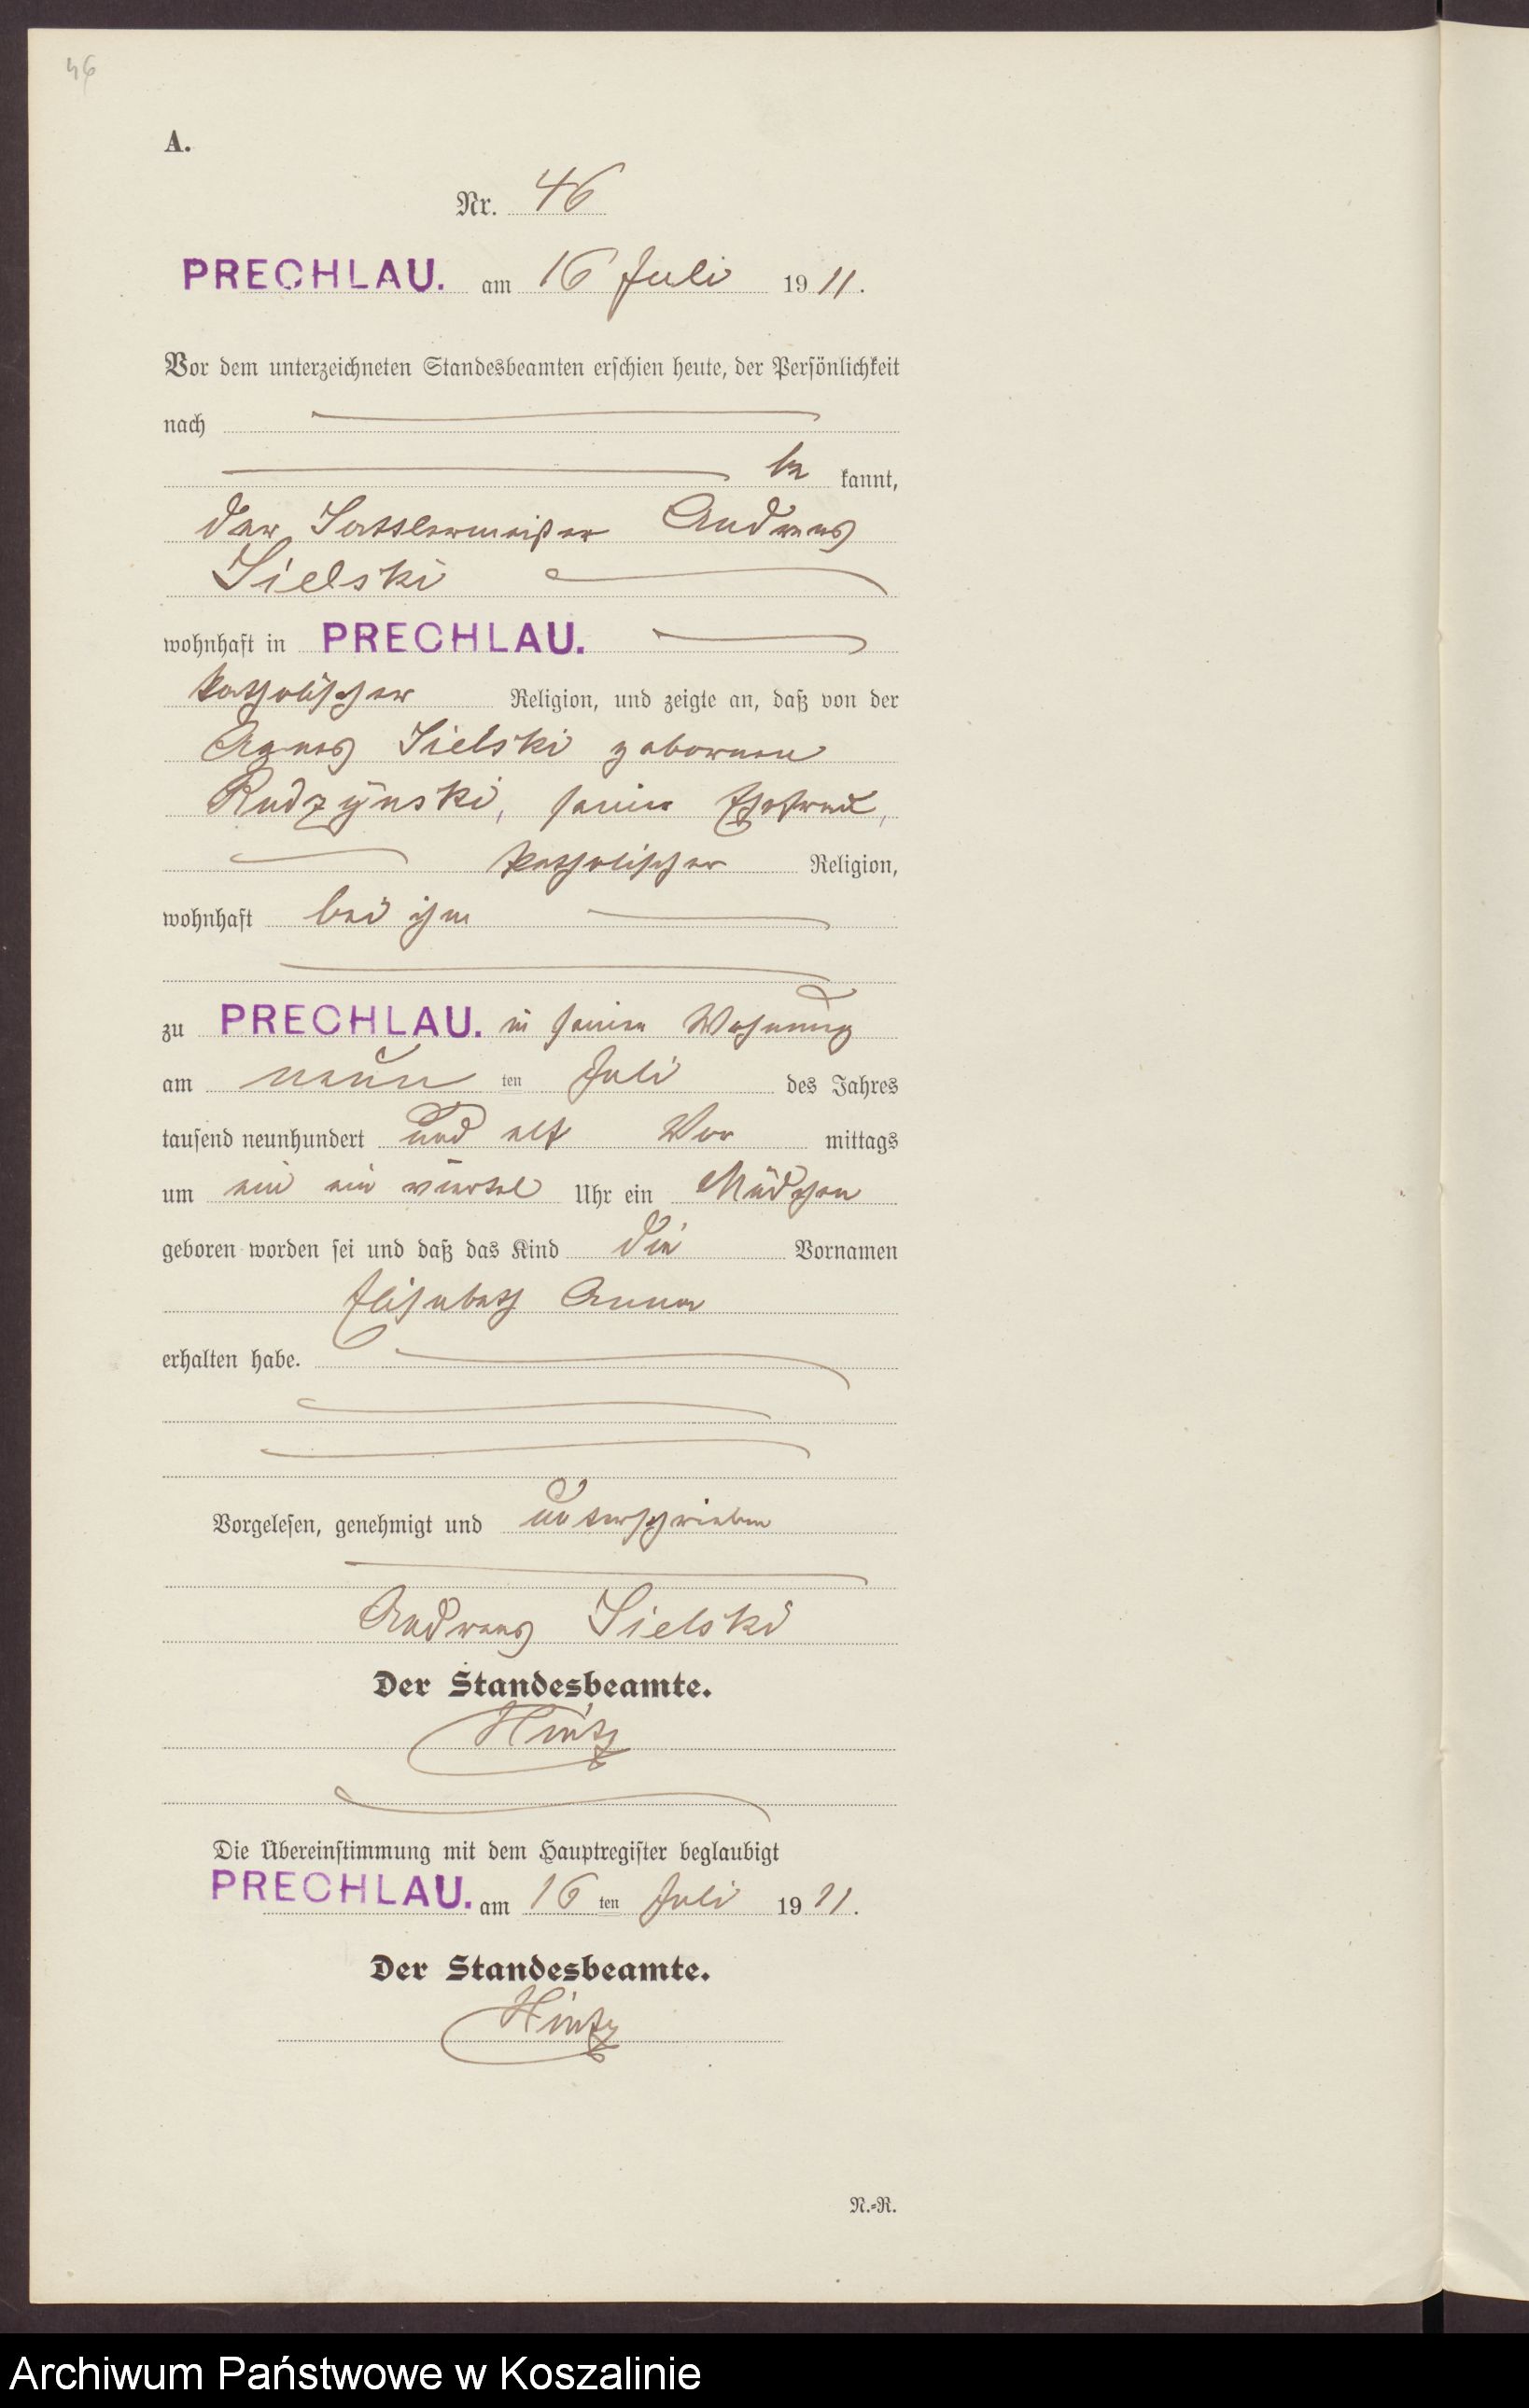 46
A.
Nr. 46
PRECHLAU. am 16 Juli 1911.
Vor dem unterzeichneten Standesbeamten erschien heute, der Persönlichkeit
nach
be kannt,
der Sattlermeister Andreas
Sielski
wohnhaft in PRECHLAU.
katholischer Religion, und zeigte an, daß von der
Agnes Sielski geborenen
Rudzynski, seiner Ehefrau,
katholischer Religion,
wohnhaft bei ihm
zu PRECHLAU. in seiner Wohnung
am neun ten Juli des Jahres
tausend neunhundert und elf Vor mittags
um ein ein viertel Uhr ein Mädchen
geboren worden sei und daß das Kind die Vornamen
Elisabeth Anna
erhalten habe.
Vorgelesen, genehmigt und unterschrieben
Andreas Sielski
Der Standesbeamte.
Hintz
Die Übereinstimmung mit dem Hauptregister beglaubigt
PRECHLAU. am 16 ten Juli 1911.
Der Standesbeamte.
Hintz
N.=R.
Archiwum Państwowe w Koszalinie